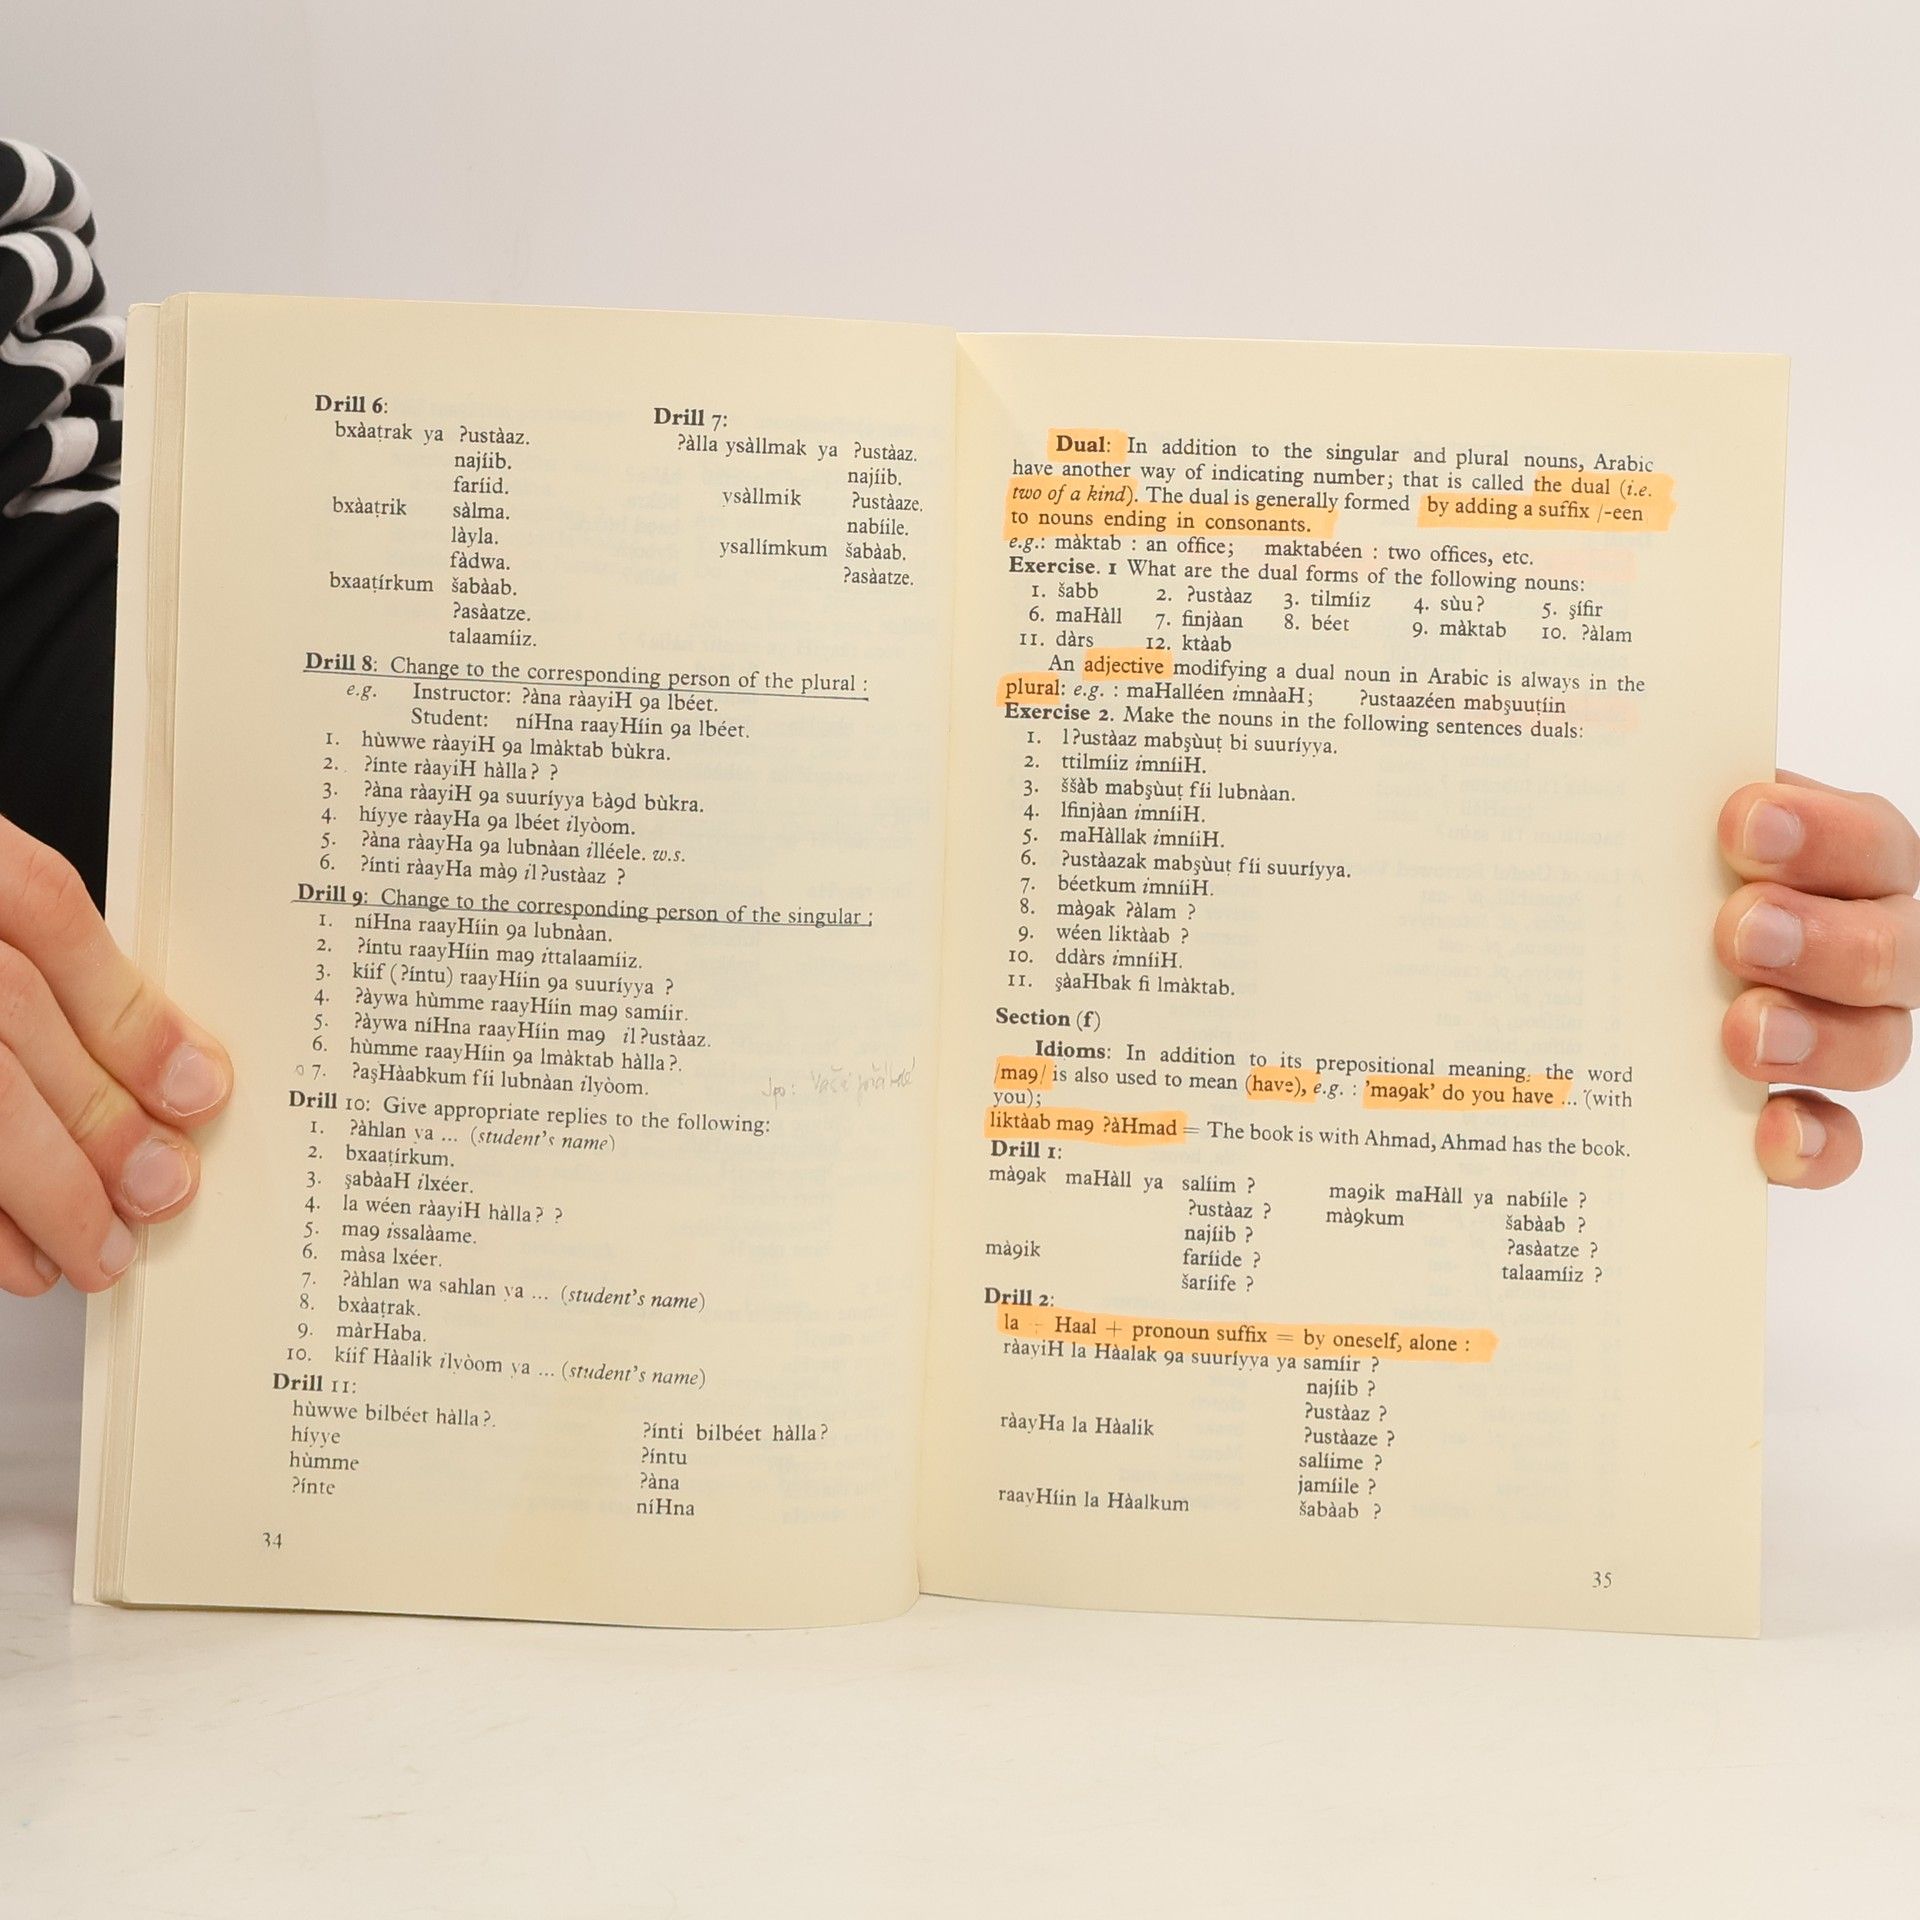 Drill 6:
bxàaṭrak ya ʔustàaz.
najíib.
faríid.
bxàaṭrik sàlma.
làyla.
fàdwa.
bxaaṭírkum šabàab.
ʔasàatze.
talaamíiz.
Drill 7:
ʔàlla ysàllmak ya ʔustàaz.
najíib.
ysàllmik ʔustàaze.
nabíile.
ysallímkum šabàab.
ʔasàatze.
Drill 8: Change to the corresponding person of the plural :
e.g. Instructor: ʔàna ràayiH 9a lbéet.
Student: níHna raayHíin 9a lbéet.
1. hùwwe ràayiH 9a lmàktab bùkra.
2. ʔínte ràayiH hàllaʔ ?
3. ʔàna ràayiH 9a suuríyya bà9d bùkra.
4. híyye ràayHa 9a lbéet ilyòom.
5. ʔàna ràayHa 9a lubnàan illéele. w.s.
6. ʔínti ràayHa mà9 ilʔustàaz ?
Drill 9: Change to the corresponding person of the singular :
1. níHna raayHíin 9a lubnàan.
2. ʔíntu raayHíin ma9 ittalaamíiz.
3. kíif (ʔíntu) raayHíin 9a suuríyya ?
4. ʔàywa hùmme raayHíin ma9 samíir.
5. ʔàywa níHna raayHíin ma9 ilʔustàaz.
6. hùmme raayHíin 9a lmàktab hàllaʔ.
7. ʔaṣHàabkum fíi lubnàan ilyòom.
Drill 10: Give appropriate replies to the following:
1. ʔàhlan ya ... (student's name)
2. bxaaṭírkum.
3. ṣabàaH ilxéer.
4. la wéen ràayiH hàllaʔ ?
5. ma9 issalàame.
6. màsa lxéer.
7. ʔàhlan wa sahlan ya ... (student's name)
8. bxàaṭrak.
9. màrHaba.
10. kíif Hàalik ilyòom ya ... (student's name)
Drill 11:
hùwwe bilbéet hàllaʔ.
híyye
hùmme
ʔínte
ʔínti bilbéet hàllaʔ
ʔíntu
ʔàna
níHna
34
Dual: In addition to the singular and plural nouns, Arabic
have another way of indicating number; that is called the dual (i.e.
two of a kind). The dual is generally formed by adding a suffix /-een
to nouns ending in consonants.
e.g.: màktab : an office; maktabéen : two offices, etc.
Exercise. 1 What are the dual forms of the following nouns:
1. šabb 2. ʔustàaz 3. tilmíiz 4. sùuʔ 5. ṣífir
6. maHàll 7. finjàan 8. béet 9. màktab 10. ʔàlam
11. dàrs 12. ktàab
An adjective modifying a dual noun in Arabic is always in the
plural: e.g. : maHalléen imnàaH; ʔustaazéen mabṣuuṭíin
Exercise 2. Make the nouns in the following sentences duals:
1. lʔustàaz mabṣùuṭ bi suuríyya.
2. ttilmíiz imníiH.
3. ššàb mabṣùuṭ fíi lubnàan.
4. lfinjàan imníiH.
5. maHàllak imníiH.
6. ʔustàazak mabṣùuṭ fíi suuríyya.
7. béetkum imníiH.
8. mà9ak ʔàlam ?
9. wéen liktàab ?
10. ddàrs imníiH.
11. ṣàaHbak fi lmàktab.
Section (f)
Idioms: In addition to its prepositional meaning. the word
/ma9/ is also used to mean (have), e.g. : 'ma9ak' do you have ... (with
you);
liktàab ma9 ʔàHmad = The book is with Ahmad, Ahmad has the book.
Drill 1:
mà9ak maHàll ya salíim ?
ʔustàaz ?
najíib ?
mà9ik faríide ?
šaríife ?
ma9ik maHàll ya nabíile ?
mà9kum šabàab ?
ʔasàatze ?
talaamíiz ?
Drill 2:
la - Haal + pronoun suffix = by oneself, alone :
ràayiH la Hàalak 9a suuríyya ya samíir ?
najíib ?
ʔustàaz ?
ràayHa la Hàalik ʔustàaze ?
salíime ?
jamíile ?
raayHíin la Hàalkum šabàab ?
35